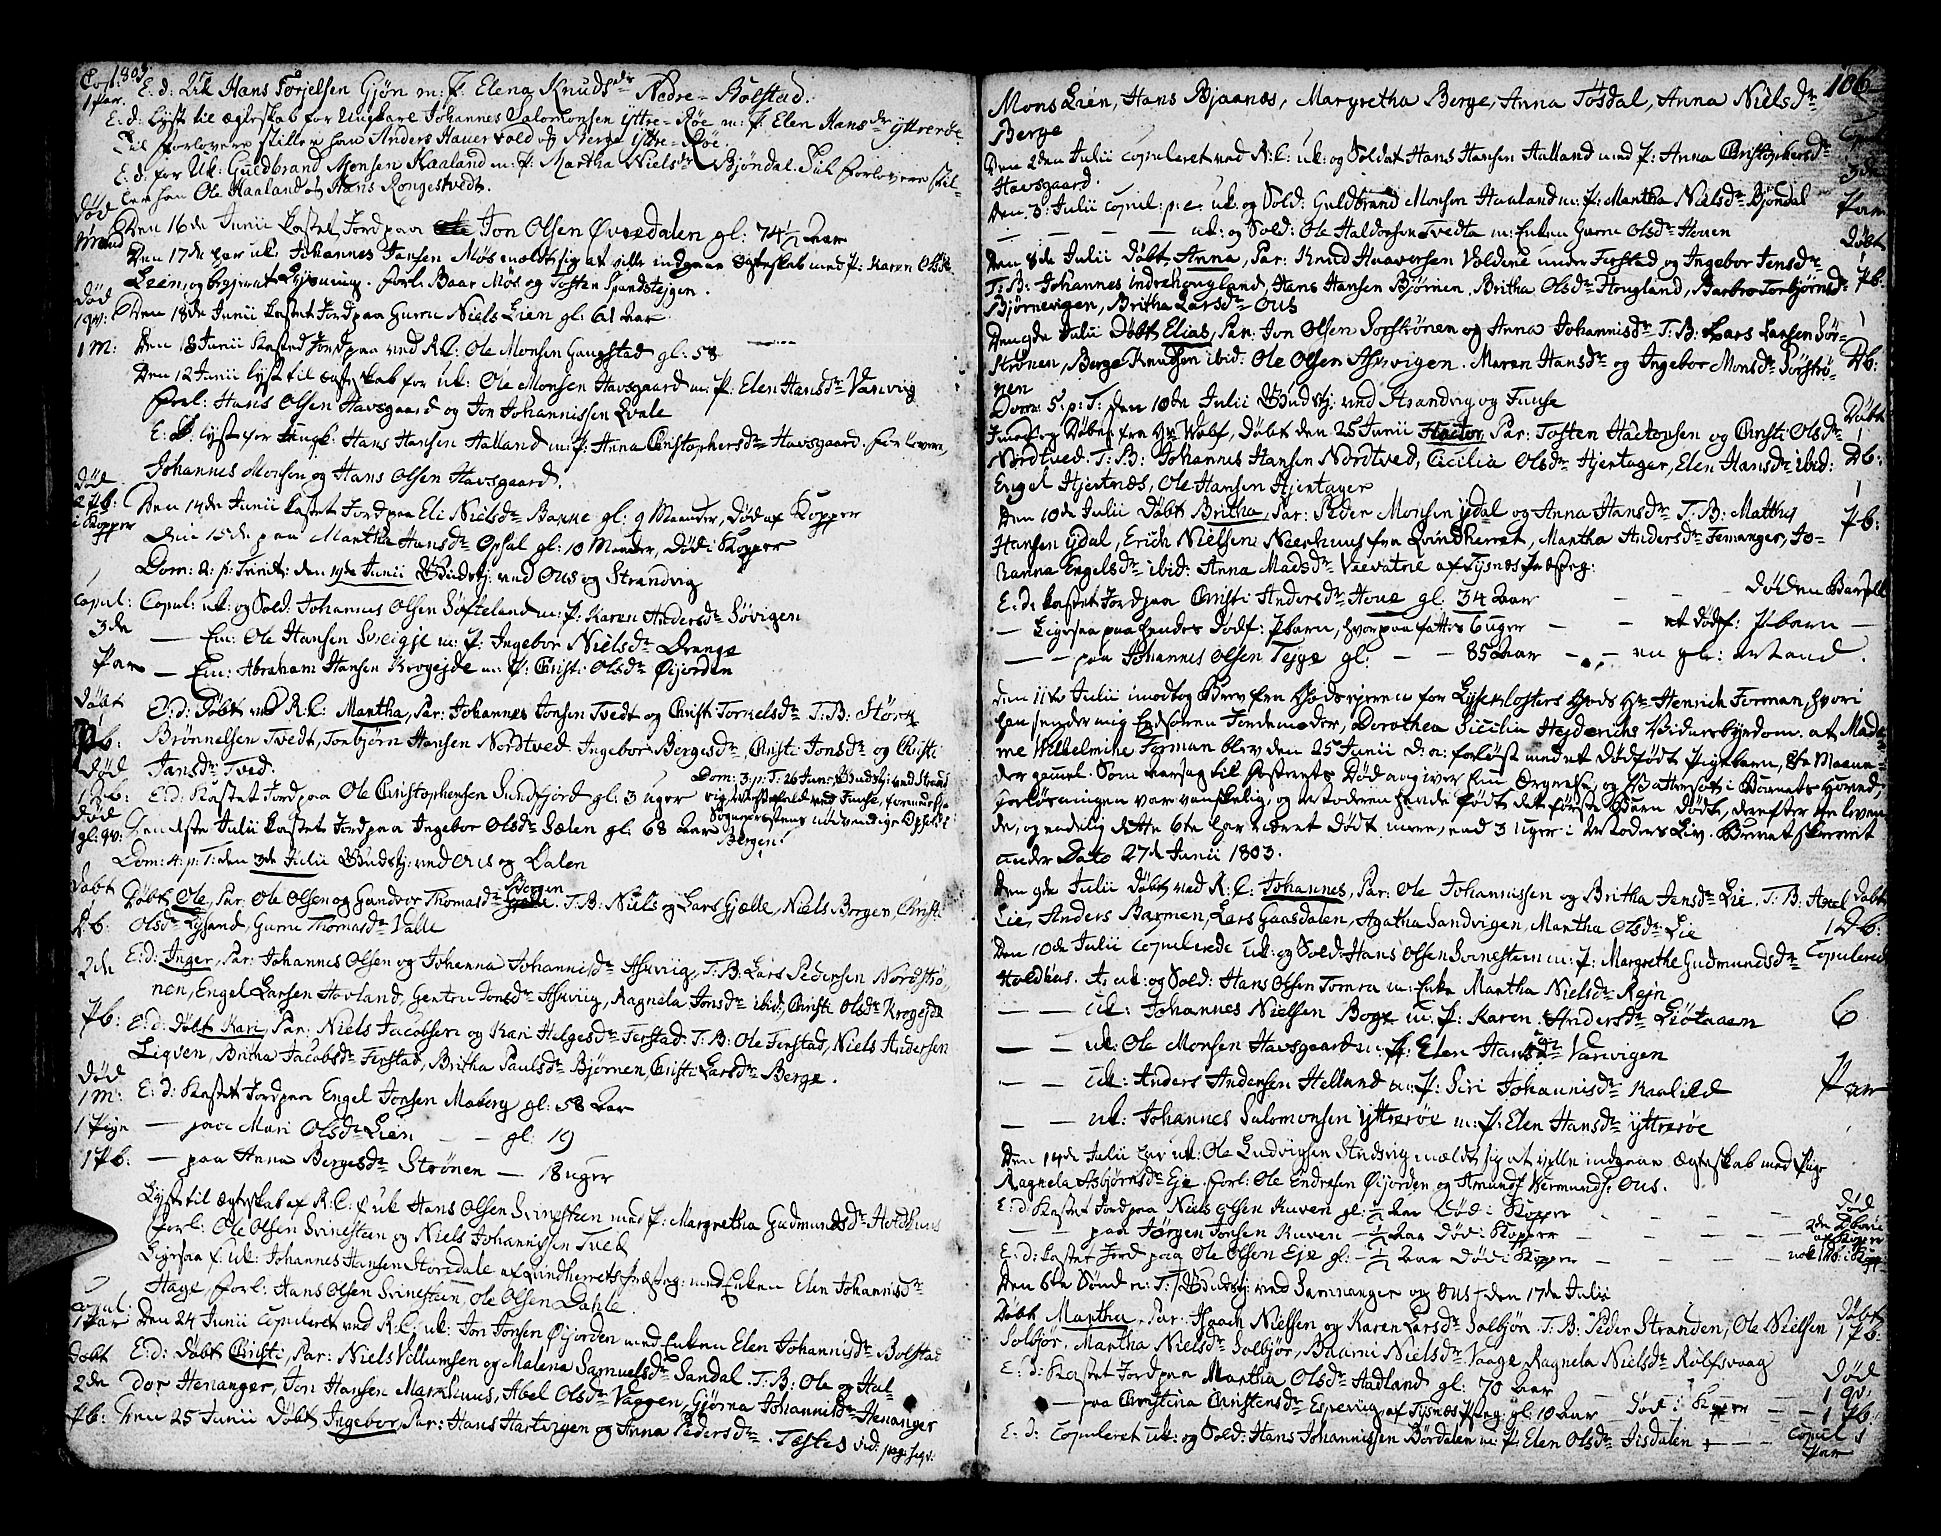 1803.
Cop:
1 Par.
E: d: Uk Hans Torjelsen Gjøn m: P. Elena Knudsdr Nedre-Bolstad.
E: d: lyst til Egteskab for Ungkarl Johannes Salomonsen Yttre-Røe m: P: Elen Hansdr Yttrerøe
Til Forlovere stiller han Anders Hauervold og Berge Yttre-Røe.
E. d. for Uk: Guldbrand Monsen Haaland m: P: Martha Nielsdr Bjøndal. Til Forlovere stil-
ler han Ole Haaland og Hans Rongestvedt.
død
Den 16de Junii kastet Jord paa Jon Olsen Øvredalen gl: 74½ Aar
Den 17de har uk: Johannes Jansen Møs meldt sig at ville indgaae Egteskab med P: Karen Olsdr
Lien, og begieret Lysning. Forl: Baar Møs og Tosten Spandstejgen.
død
1 qv:
Den 18de Junii kastet Jord paa Gurru Niels Lien gl: 61 Aar
1 M:
Den 18 Junii kasted Jord paa ved R.C: Ole Monsen Gaugstad gl: 58
Den 12 Junii lyst til Egteskab for uk: Ole Monsen Havsgaard m: P: Elen Hansdr Varvig
Forl: Hans Olsen Havsgaard og Jon Johannissen Qvale
E. d. lyst for Ungk: Hans Hansen Aalland m: P: Anna Christophersdr Havsgaard. Forlovere,
Johannes Monsen og Hans Olsen Havsgaard.
død
2 Pb:
i Kopper
Den 14de Junii kastet Jord paa Eli Nielsdr Banne gl: 9 Maander, død af Kopper
Den 15de paa Martha Hansdr Opsal gl: 10 Mander, død i Kopper
Dom: 2. p: Trinit: den 19de Junii Gudstj: ved Ous og Strandvig
Copul:
3de
Par
Copul: uk: og Sold: Johannes Olsen Søfteland m: P: Karen Andersdr Søvigen
— Em: Ole Hansen Sveigje m: P: Ingebor Nielsdr Drange
— Em: Abraham Hansen Krogejde m: P: Christi Olsdr Øijorden
Døbt
Pb:
E: d: Døbt ved R: C: Martha, Par: Johannes Jonsen Tvedt og Christi Torkelsdr T: B: Størk
Brønnelsen Tvedt, Torbjørn Hansen Nordtved. Ingebor Bergesdr, Christi Jonsdr og Christi
Jansdr Tved.
død
1 Db:
E: d: Kastet Jord paa Ole Christophersen Sundfjord gl: 3 Uger
Dom: 3. p: T: 26 Junii Gudstj: ved Strand
vig, Messefald ved Fuuse, formedelst
Sognepræstens nødvendige Ophold i
Bergen.
død
gl: qv:
Den 1ste Julii kastet Jord paa Ingebor Olsdr Sælen gl: 68 Aar
Dom: 4. p: T: den 3de Julii Gudstj: ved Ous og Dalen
døbt
1
Db:
Døbt Ole, Par: Ole Olsen og Gundvor Thomasdr Bergen. T: B: Niels og Lars Gjælle, Niels Borgen, Christi
Olsdr Lysand, Gurru Thomasdr Valle
2de
Pb:
E: d: Inger, Par: Johannes Olsen og Johanna Johannisdr Askviig, T: B: Lars Pedersen Nordstrø-
nen, Engel Larsen Hovland, Gentru Jonsdr Askviig, Ragnela Jonsdr ibid: Christi Olsdr Krogejde
E: d: døbt Kari, Par: Niels Jacobsen og Kari Helgesdr Ferstad. T: B: Ole Ferstad, Niels Andersen
Ligven, Britha Jacobsdr Ferstad, Britha Paulsdr Bjørnen, Christi Larsdr Berge.
død
1 M:
E: d: Kastet Jord paa Engel Jonsen Moberg gl: 58 Aar
1 Pige
— paa Mari Olsdr Lien — gl: 19
1 Pb:
— paa Anna Bergesdr Strønen — 18 uger
Lyst til Egteskab af R.C. f: uk Hans Olsen Svinesteen med P: Margretha Gudmundsdr Holdhuus
Forl: Ole Olsen Svinesteen og Niels Johannissen Tved
Ligesaa f: uk: Johannes Hansen Storedale af Qvindherrets Præsteg: med Enken Elen Johannisdr
Hage, Forl: Hans Olsen Svinesteen, Ole Olsen Dahle.
Copul:
1 Par
Den 24 Junii copuleret ved R: C: uk: Jon Jonsen Øijorden med Enken Elen Johannisdr Bolstad
Døbt
2de
Pb:
E: d: Døbt Christi, Par: Niels Villumsen og Malena Samuelsdr Sandal. T. B: Ole og Hal-
dor Henanger, Jon Hansen Markhuus, Abel Olsdr Vaggen, Gjørna Johannisdr Henanger
Den 25 Junii døbt Ingebor, Par: Hans Hartvigen og Anna Pedersdr. Testes vid: pag: seqv:
106
Mons Lien, Hans Bjaanæs, Margretha Berge, Anna Tøsdal, Anna Nielsdr
Berge
Den 2den Julii copuleret ved R: C: uk: og Soldat Hans Hansen Aalland med P: Anna Christophersdr
Havsgaard.
Copul:
3de
Par
Den 3: Julii copul: p: e: uk: og Sold: Guldbrand Monsen Haaland m: P: Martha Nielsdr Bjøndal
— — — — uk: og Sold: Ole Haldorsen Tvedta m: Enken Gurru Olsdr Houen
Døbt
1
Pb:
Den 8de Julii døbt Anna, Par: Knud Haavorsen Voldene under Ferstad og Ingebor Jensdr
T: B: Johannes Indrehougland, Hans Hansen Bjørnen. Britha Olsdr Hougland, Barbro Torbjørnsdr
Bjørnevigen, Britha Larsdr Ous
1
Db:
Den 9de Julii døbt Elias, Par: Jon Olsen Sorstrønen og Anna Johannisdr T: B: Lars Larsen Sør-
strønen, Berge Knudsen ibid: Ole Olsen Askvigen. Maren Hansdr og Ingebor Monsdr Sørstrø-
nen
Dom: 5. p: T: den 10de Julii Gudstj: ved Strandvig og Fuuse
Døbt
1
Db:
Indførs døbn fra Hr Wolf, Døbt den 25 Junii Hactor, Par: Tosten Hactorsen og Christi Olsdr
Nordtved. T: B: Johannes Hansen Nordtved, Cicilia Olsdr Hjertager, Elen Hansdr ibid:
Engel Hjertnæs, Ole Hansen Hjertager
1
Pb:
Den 10de Julii Døbt Britha, Par: Peder Monsen Ydal og Anna Hansdr T: B: Matthis
Hansen Ydal, Erich Nielsen Neerhuus fra Qvindherret, Martha Andersdr Femanger, Jo-
hanna Engelsdr ibid: Anna Madsdr Vaevatne af Tysnæs Præsteg:
E: d: kastet Jord paa Christi Andersdr Houe gl: 34 Aar — — — død en Barsel
— Ligesaa paa hendes dødf: Pbarn, hvorpaa fattes 6 uger — — et dødf: Pbarn —
— — paa Johannes Olsen Tejge gl: — — 85 Aar — — en gl: Mand.
Den 11te Julii imodtog Brev fra Godsejeren for Lyseklosters Gods Hr Henrich Forman, hvori
han sender mig Edsoren Jordemoder, Dorothea Sicilia Hejderichs Vidnesbyrdom. at Mada-
me Wilhelmine Forman blev den 25 Junii d: a: forløst med et dødfødt Pigebarn, 8te Maane-
der gammel. Som aarsag til Fosterets Død angiver hun Orgrelse, og Vattersot i Barnets Hoved,
Forløsningen var vanskelig, og Moderen havde født det første Barn Dødt, derefter tre leven-
de, og endelig dette 6te har været Dødt mere, end 3 uger i Moders Liv. Brevet skrevet
under Dato 27de Junii 1803.
døbt
1 Db:
Den 9de Julii døbt ved R. C: Johannes, Par: Ole Johannissen og Britha Jensdr Lie. T: B: Axel
Lie, Anders Barmen, Lars Gaasdalen, Agatha Sandvigen, Martha Olsdr Lie
Copulered
6
Par
Den 10de Julii copulerede Uk: og Sold: Hans Olsen Svinesteen m: P: Margrethe Gudmundsdr
Holdhus. A, uk: og Sold: Hans Olsen Tomra m: Enke Martha Nielsdr Rejn
— — Uk: Johannes Nielsen Boge m: P: Karen Andersdr Liøtaaen
— — uk: Ole Monsen Havsgaard m: P: Elen Hansdr Varvigen
— — Uk: Anders Andersen Helland m: P: Siri Johannisdr Kaalild
— — uk: Johannes Salomonsen Yttrerøe m: P: Elen Hansdr Yttrerøe
Den 14de Julii har uk: Ole Ludvigsen Studsvig meldt sig at ville indgaae Egteskab med Pige
Ragnela Asbjørnsdr Eje. Forl: Ole Endresen Øijorden og Amund Vermunds: Ous.
E: d: Kastet Jord paa Niels Olsen Ruven gl: ½ Aar død i Kopper — — — død
— — paa Jørgen Jonsen Ruven — ½ Aar død i Kopper — — — 2de Dbørn
af Kopper
E: d: kastet Jord paa Ole Olsen Eje gl: — ½ Aar død i Kopper — — — nok 1 Db: i Kopp
Den 6te Sønd: e: T: Gudstj: ved Saminanger og Ous den 17de Julii
Døbt
1 Pb:
Døbt Martha, Par: Isaach Nielsen og Karen Larsdr Solbjør. T: B: Peder Stranden, Ole Nielsen
Solbjør, Martha Nielsdr Solbjør, Baarni Nielsdr Vaage, Ragnela Nielsdr Rølfsvaag
Død
1 qv:
E: d: Kastet Jord paa Martha Olsdr Hadland gl: 70 Aar
— paa Christina Christensdr Espeviig af Tysnæs Præsteg: gl: 10 Aar — død i Kopper — — 1 Pb:
E: d: Copuleret uk: og Sold: Hans Johannissen Børdalen m: P: Elen Olsdr Jisdalen — — Copul 1
Par